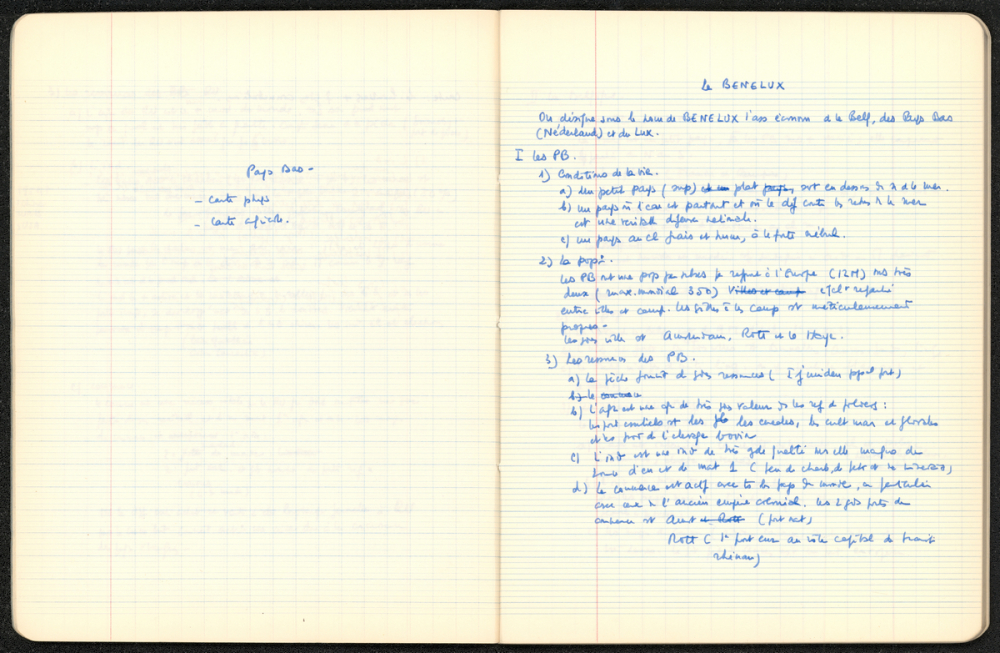 Pays Bas -
- carte phys
- carte agricole.
le BENELUX
On désigne sous le nom de BENELUX l'ass économ de la Belg, des Pays Bas
(Nederland) et du Lux.
I les PB.
1) Conditions de la vie.
a) Un petit pays (sup) plat pays, en dessous du de la mer.
b) un pays où l'eau est partout et où la déf contre la mer
est une véritable défense nationale.
c) un pays au cl frais et hum, à la forte nébul.
2) la popº.
les PB ont une pop par à l'Europe (12M) mais très
dense (max. mondial 350) villes et camp répartie
entre villes et camp. les villes à les camp st méticuleusement
propres.
les gdes villes st Amsterdam, Rott et la Haye.
3) Les ressources des PB.
a) la pêche fournit de ressources (Ijmuiden port)
b) le commerce
b) l'agr est une agr de très valeur ds les polders :
les céréales, les cult mar et florales
et de l'élevage bovin
c) l'ind est une ind de très gde qualité mais elle manque de
d'en et de mat 1 (peu de charb, de petr et
d) le commerce est actif avec ts les pays du monde, en particulier
avec l'ancien empire colonial. les 2 gds ports de
commerce st Amst et Rott (port nat)
Rott (1er port eur au rôle capital de transit
rhénan)